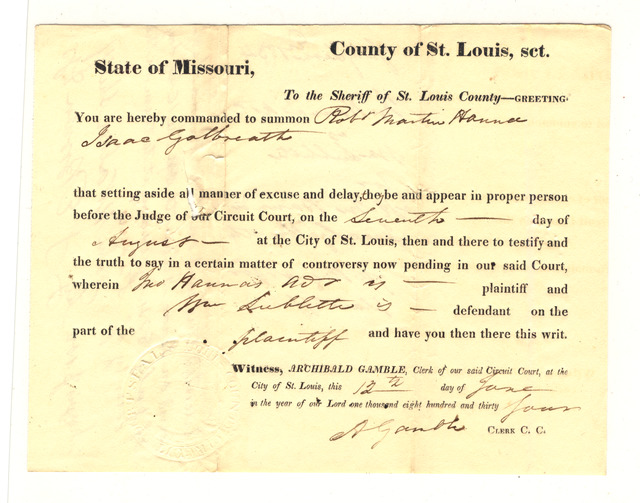 County of St. Louis, sct.
State of Missouri,
To the Sheriff of St. Louis County—GREETING.
You are hereby commanded to summon Robt Martin Hanna
Isaac Galbreath
that setting aside all manner of excuse and delay, they be and appear in proper person
before the Judge of our Circuit Court, on the Seventh — day of
August — at the City of St. Louis, then and there to testify and
the truth to say in a certain matter of controversy now pending in our said Court,
wherein Jno Hannas adr is — plaintiff and
Wm Sublette is — defendant on the
part of the plaintiff and have you then there this writ.
Witness, ARCHIBALD GAMBLE, Clerk of our said Circuit Court, at the
City of St. Louis, this 12th day of June
in the year of our Lord one thousand eight hundred and thirty four
A Gamble CLERK C. C.